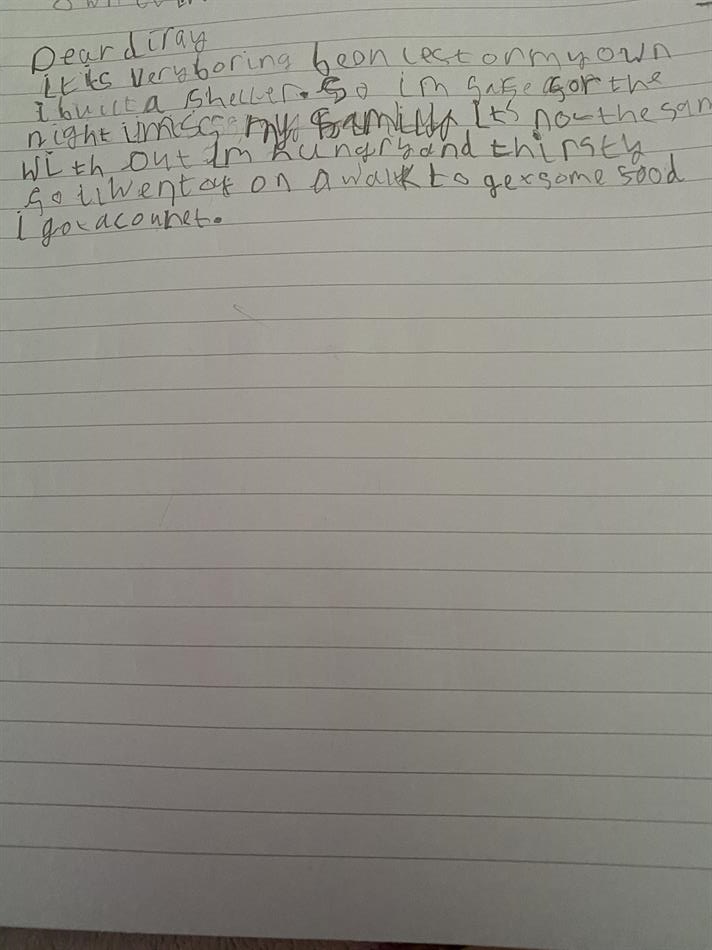 Dear diray
it is very boring beon lest on my own
i built a shelter. So im sase sor the
night i miss my family It's not the sam
with out Im hungry and thirsty
so i went ot on a walk to get some sood
i got a counet.